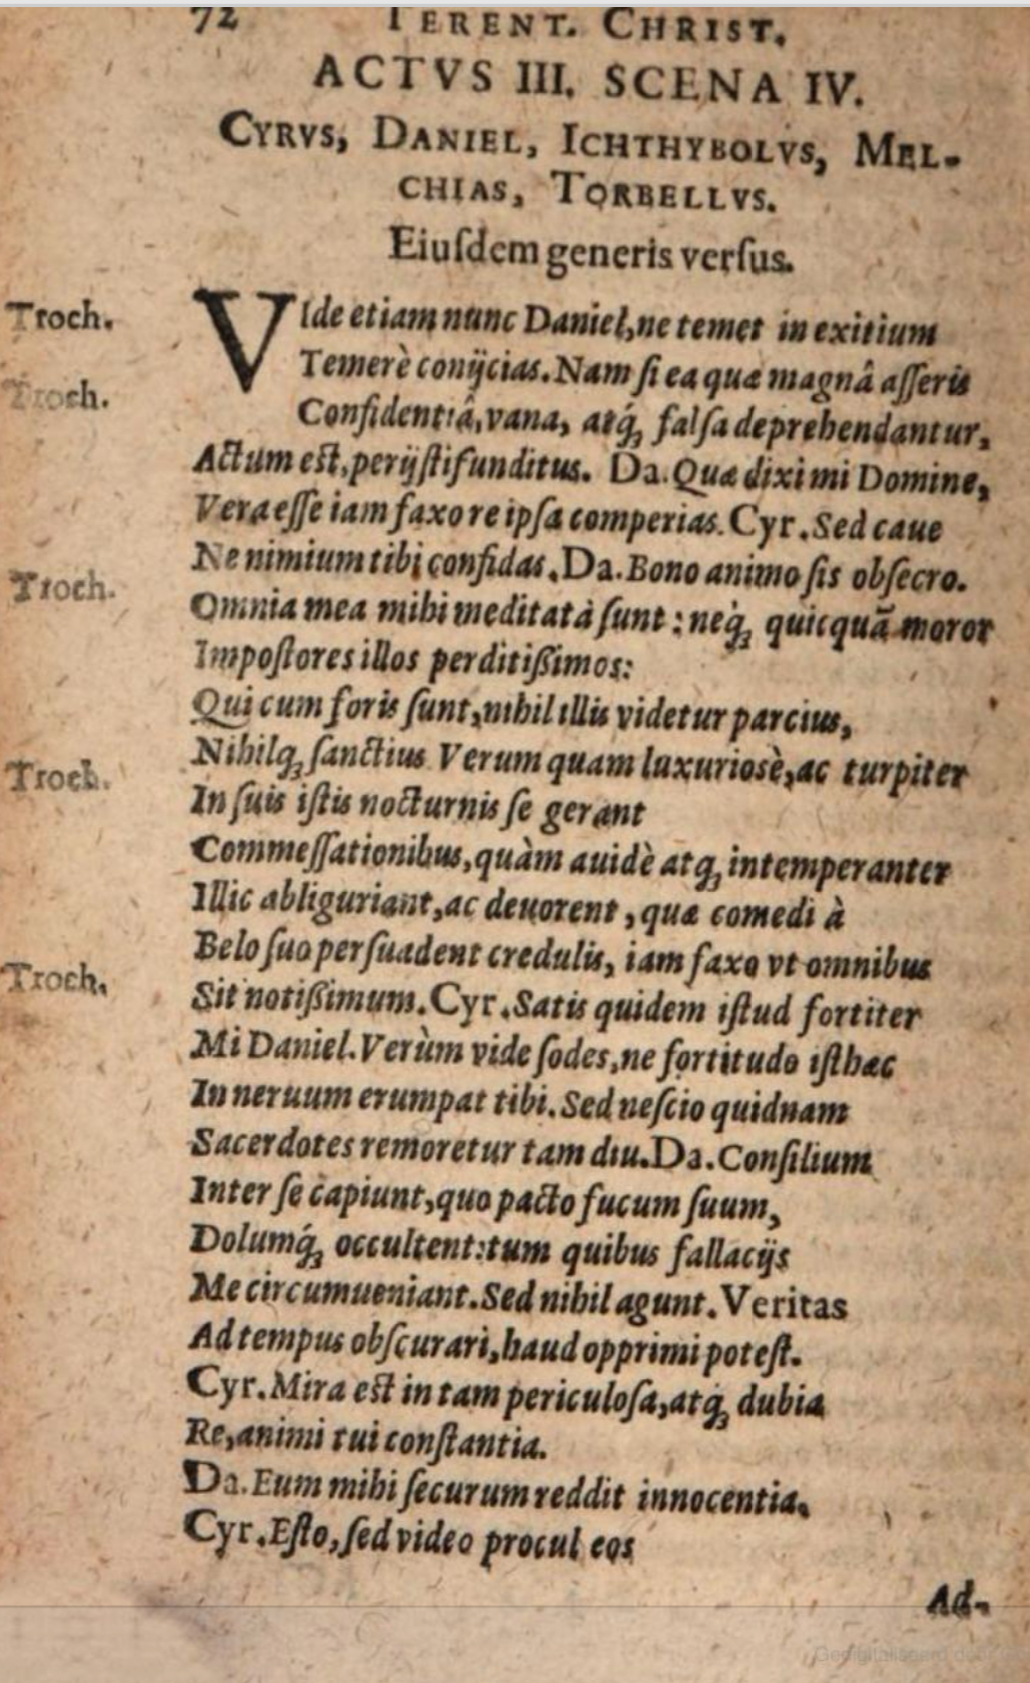 72 TERENT. CHRIST.
ACTVS III. SCENA IV.
CYRVS, DANIEL, ICHTHYBOLVS, MEL-
CHIAS, TORBELLVS.
Eiuſdem generis verſus.
Troch. VIde etiam nunc Daniel, ne temet in exitium
Temerè conijcias. Nam ſi ea quæ magnâ aſſeris
Troch. Confidentiâ, vana, atq́; falſa deprehendantur,
Actum est, perijſti funditus. Da. Quæ dixi mi Domine,
Vera eſſe iam faxo re ipſa comperias. Cyr. Sed caue
Ne nimium tibi confidas. Da. Bono animo ſis obſecro.
Troch. Omnia mea mihi meditatà ſunt: neq́; quicquã moror
Impoſtores illos perditißimos:
Qui cum foris ſunt, nihil illis videtur parcius,
Nihilq; ſanctius Verum quam luxuriosè, ac turpiter
Troch. In ſuis iſtis nocturnis ſe gerant
Commeſſationibus, quàm auidè atq; intemperanter
Illic abliguriant, ac deuorent, quæ comedi à
Belo ſuo perſuadent credulis, iam faxo vt omnibus
Troch. Sit notißimum. Cyr. Satis quidem iſtud fortiter
Mi Daniel. Verùm vide ſodes, ne fortitudo iſthæc
In neruum erumpat tibi. Sed neſcio quidnam
Sacerdotes remoretur tam diu. Da. Conſilium
Inter ſe capiunt, quo pacto fucum ſuum,
Dolumq́; occultent: tum quibus fallacijs
Me circumueniant. Sed nihil agunt. Veritas
Ad tempus obſcurari, haud opprimi poteſt.
Cyr. Mira est in tam periculoſa, atq; dubia
Re, animi tui conſtantia.
Da. Eum mihi ſecurum reddit innocentia.
Cyr. Eſto, ſed video procul eos
Ad-